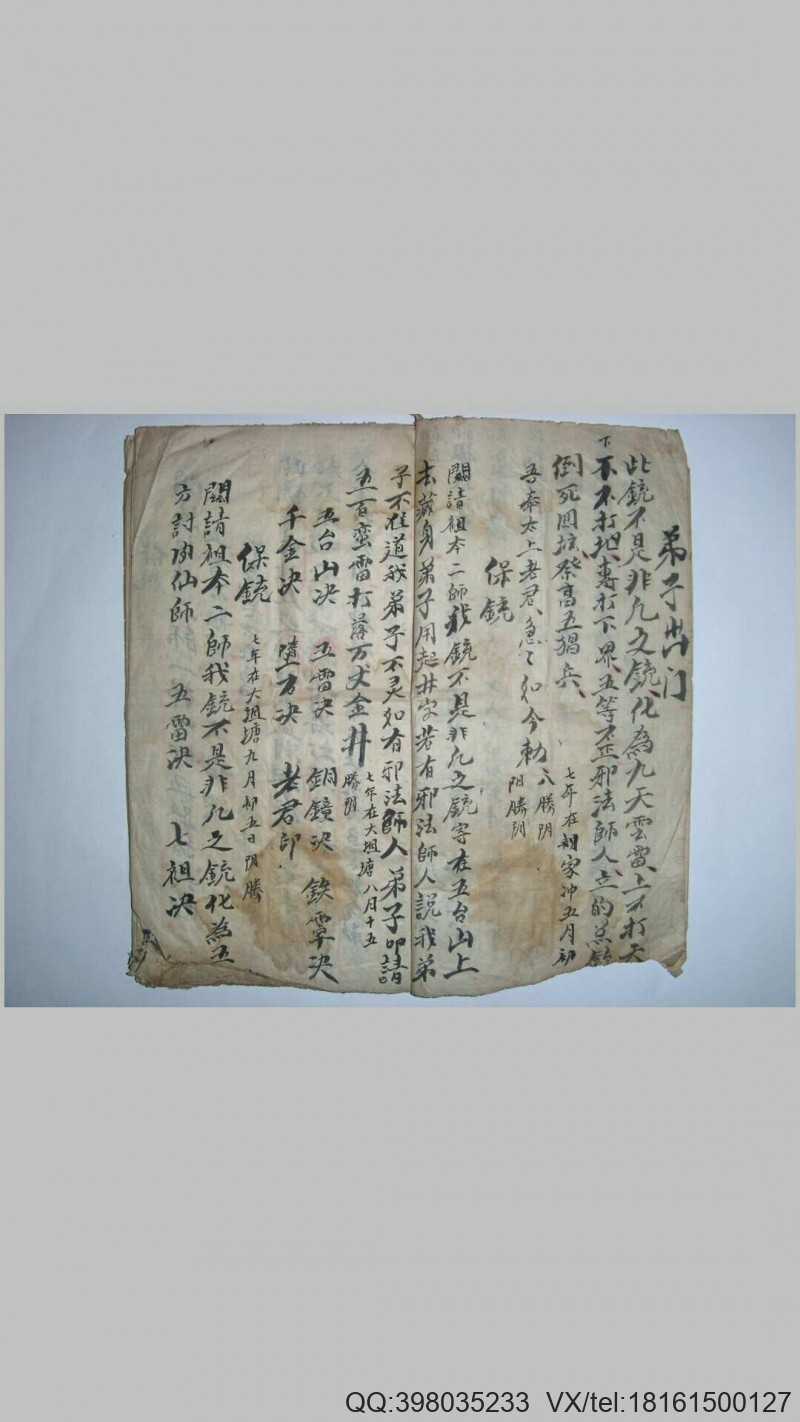 弟子出门
此銃不是非凡之銃化為九天雲雷上不打天
下不打地專打下界五等不正邪法師人立的
倒死回壇祭高五猖兵
七年在 家冲五月初
八勝阴
阳勝阴
吾奉太上老君急々如令勅
保銃
關請祖本二師我銃不是非凡之銃寄在五台山上
去藏身弟子用起井字若有邪法師人說我弟
子不在道我弟子不灵如有邪法師人弟子叩請
五百蛮雷打落万丈金井
七年在大坦塘八月十五
勝阴
五台山决 五雷决 銅鏡决 鉄 决
千金决 墮方决 老君印
保銃
七年在大坦塘九月初五日阴勝
關請祖本二師我銃不是非凡之銃化為五
方討 仙師 五雷决 七祖决
QQ:398035233 VX/tel:18161500127